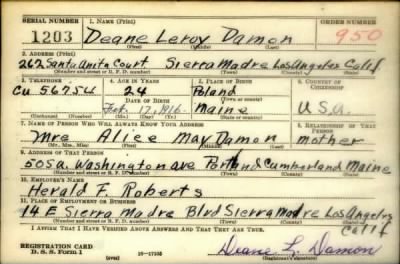 SERIAL NUMBER 1. NAME (Print) ORDER NUMBER
1203 Deane Leroy Damon 950
(First) (Middle) (Last)
2. ADDRESS (Print)
262 Santa Anita Court Sierra Madre Los Angeles Calif
(Number and street or R. F. D. number) (Town) (County) (State)
3. TELEPHONE 4. AGE IN YEARS 5. PLACE OF BIRTH 6. COUNTRY OF CITIZENSHIP
Cu 56754 24 Poland
DATE OF BIRTH (Town or county)
Feb. 17, 1916 Maine U.S.A.
(Mo.) (Day) (Yr.) (State or country)
7. NAME OF PERSON WHO WILL ALWAYS KNOW YOUR ADDRESS 8. RELATIONSHIP OF THAT PERSON
Mrs Alice May Damon mother
(Mr., Mrs., Miss) (First) (Middle) (Last)
9. ADDRESS OF THAT PERSON
505a Washington ave Portland Cumberland Maine
(Number and street or R. F. D. number) (Town) (County) (State)
10. EMPLOYER'S NAME
Herald F. Roberts
11. PLACE OF EMPLOYMENT OR BUSINESS
14 E Sierra Madre Blvd Sierra Madre Los Angeles
(Number and street or R. F. D. number) (Town) (County) (State)
Calif
I AFFIRM THAT I HAVE VERIFIED ABOVE ANSWERS AND THAT THEY ARE TRUE.
REGISTRATION CARD
D. S. S. Form 1 16-17105 Deane L. Damon
(Registrant's signature)